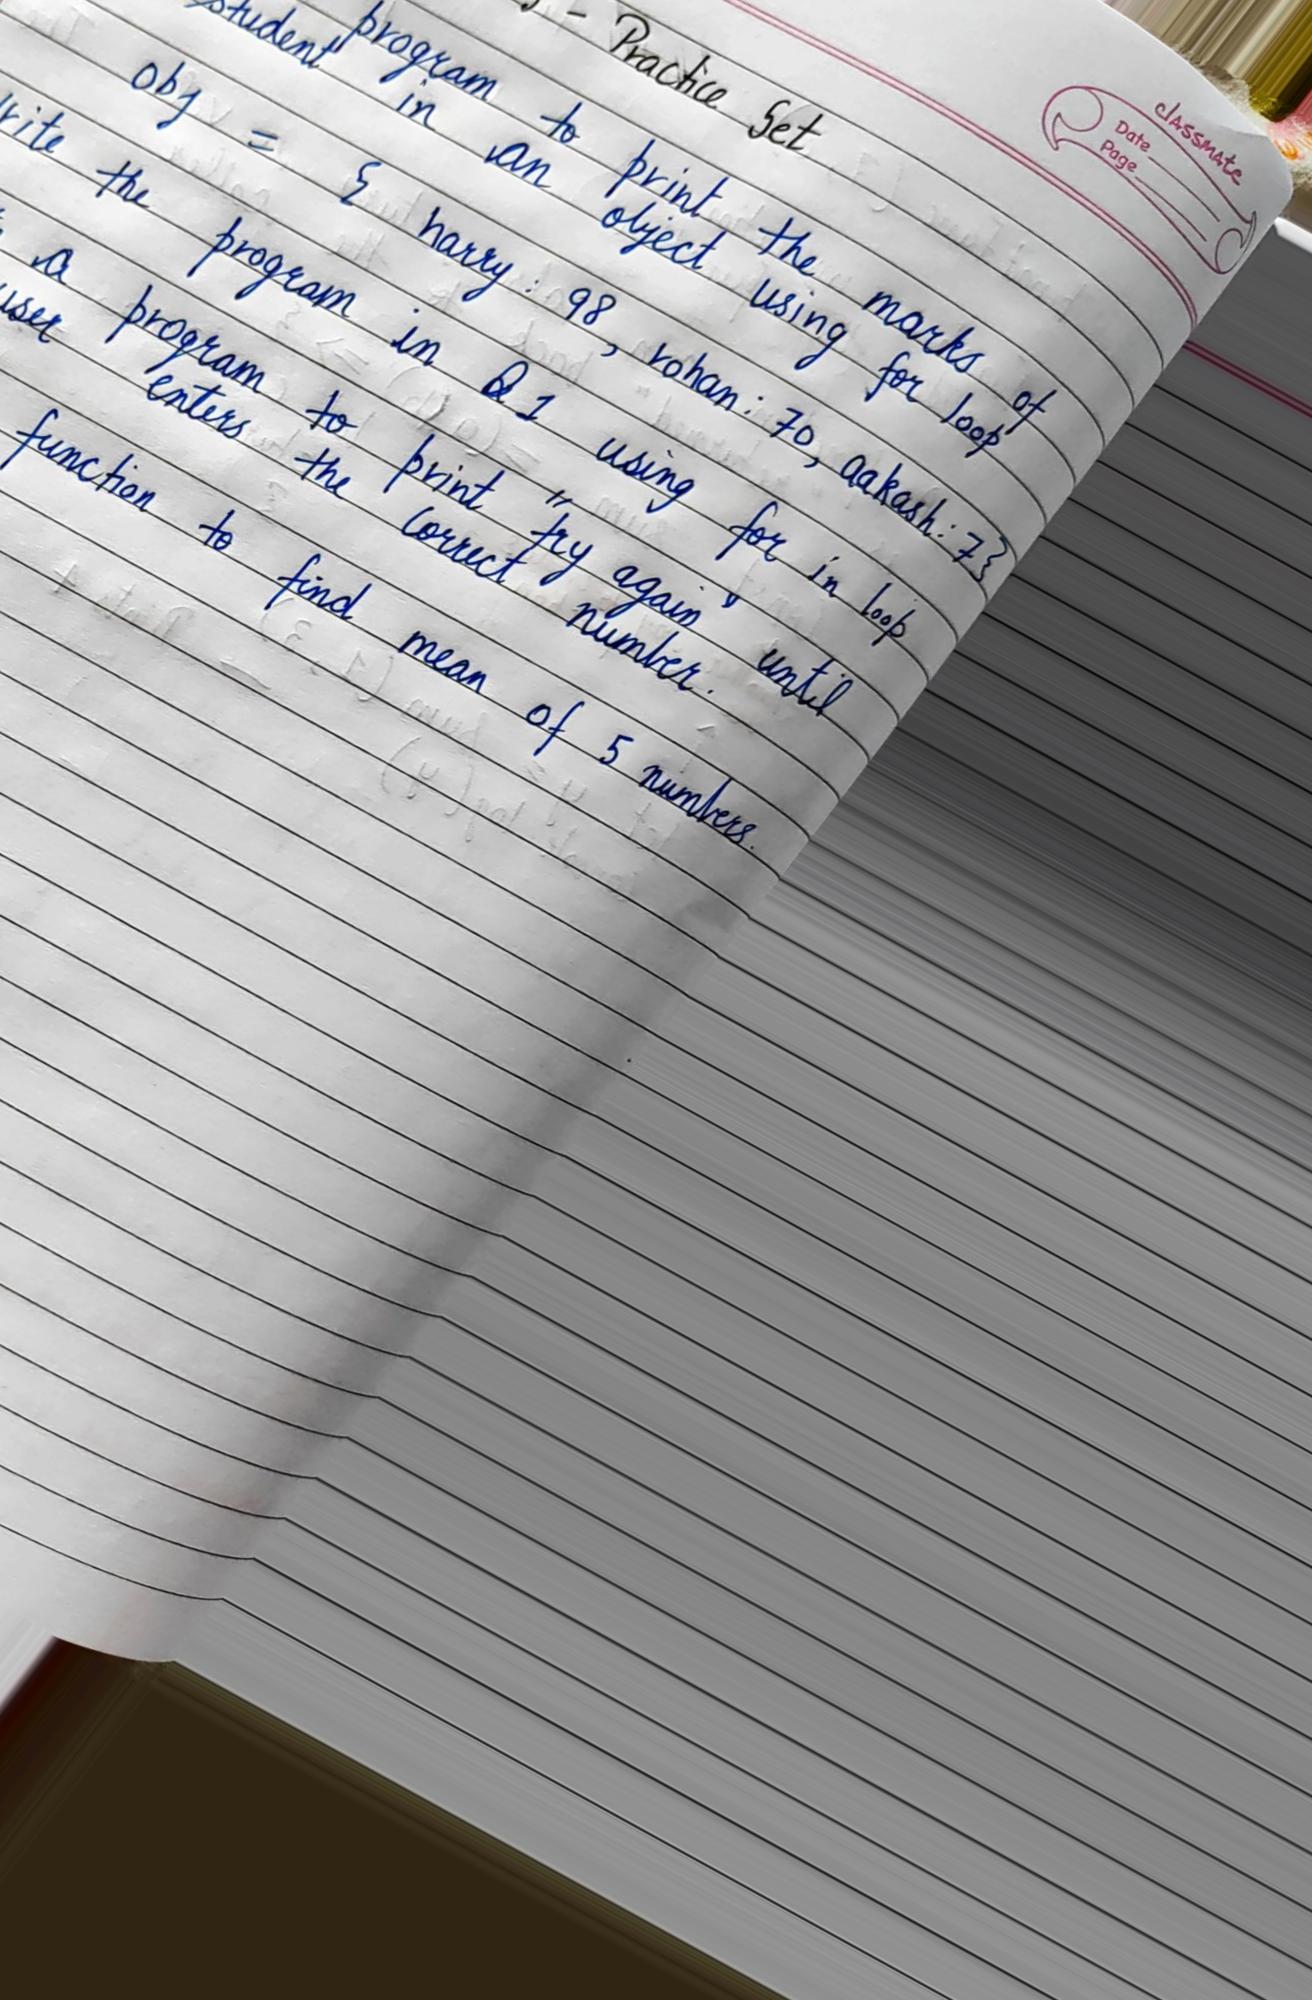 - Practice Set
classmate
Date
Page
program to print the marks of
student in an object using for loop
obj = { harry: 98, rohan: 70, aakash: 7}
the program in Q1 using for in loop
a program to print "try again" until
user enters the correct number.
function to find mean of 5 numbers.